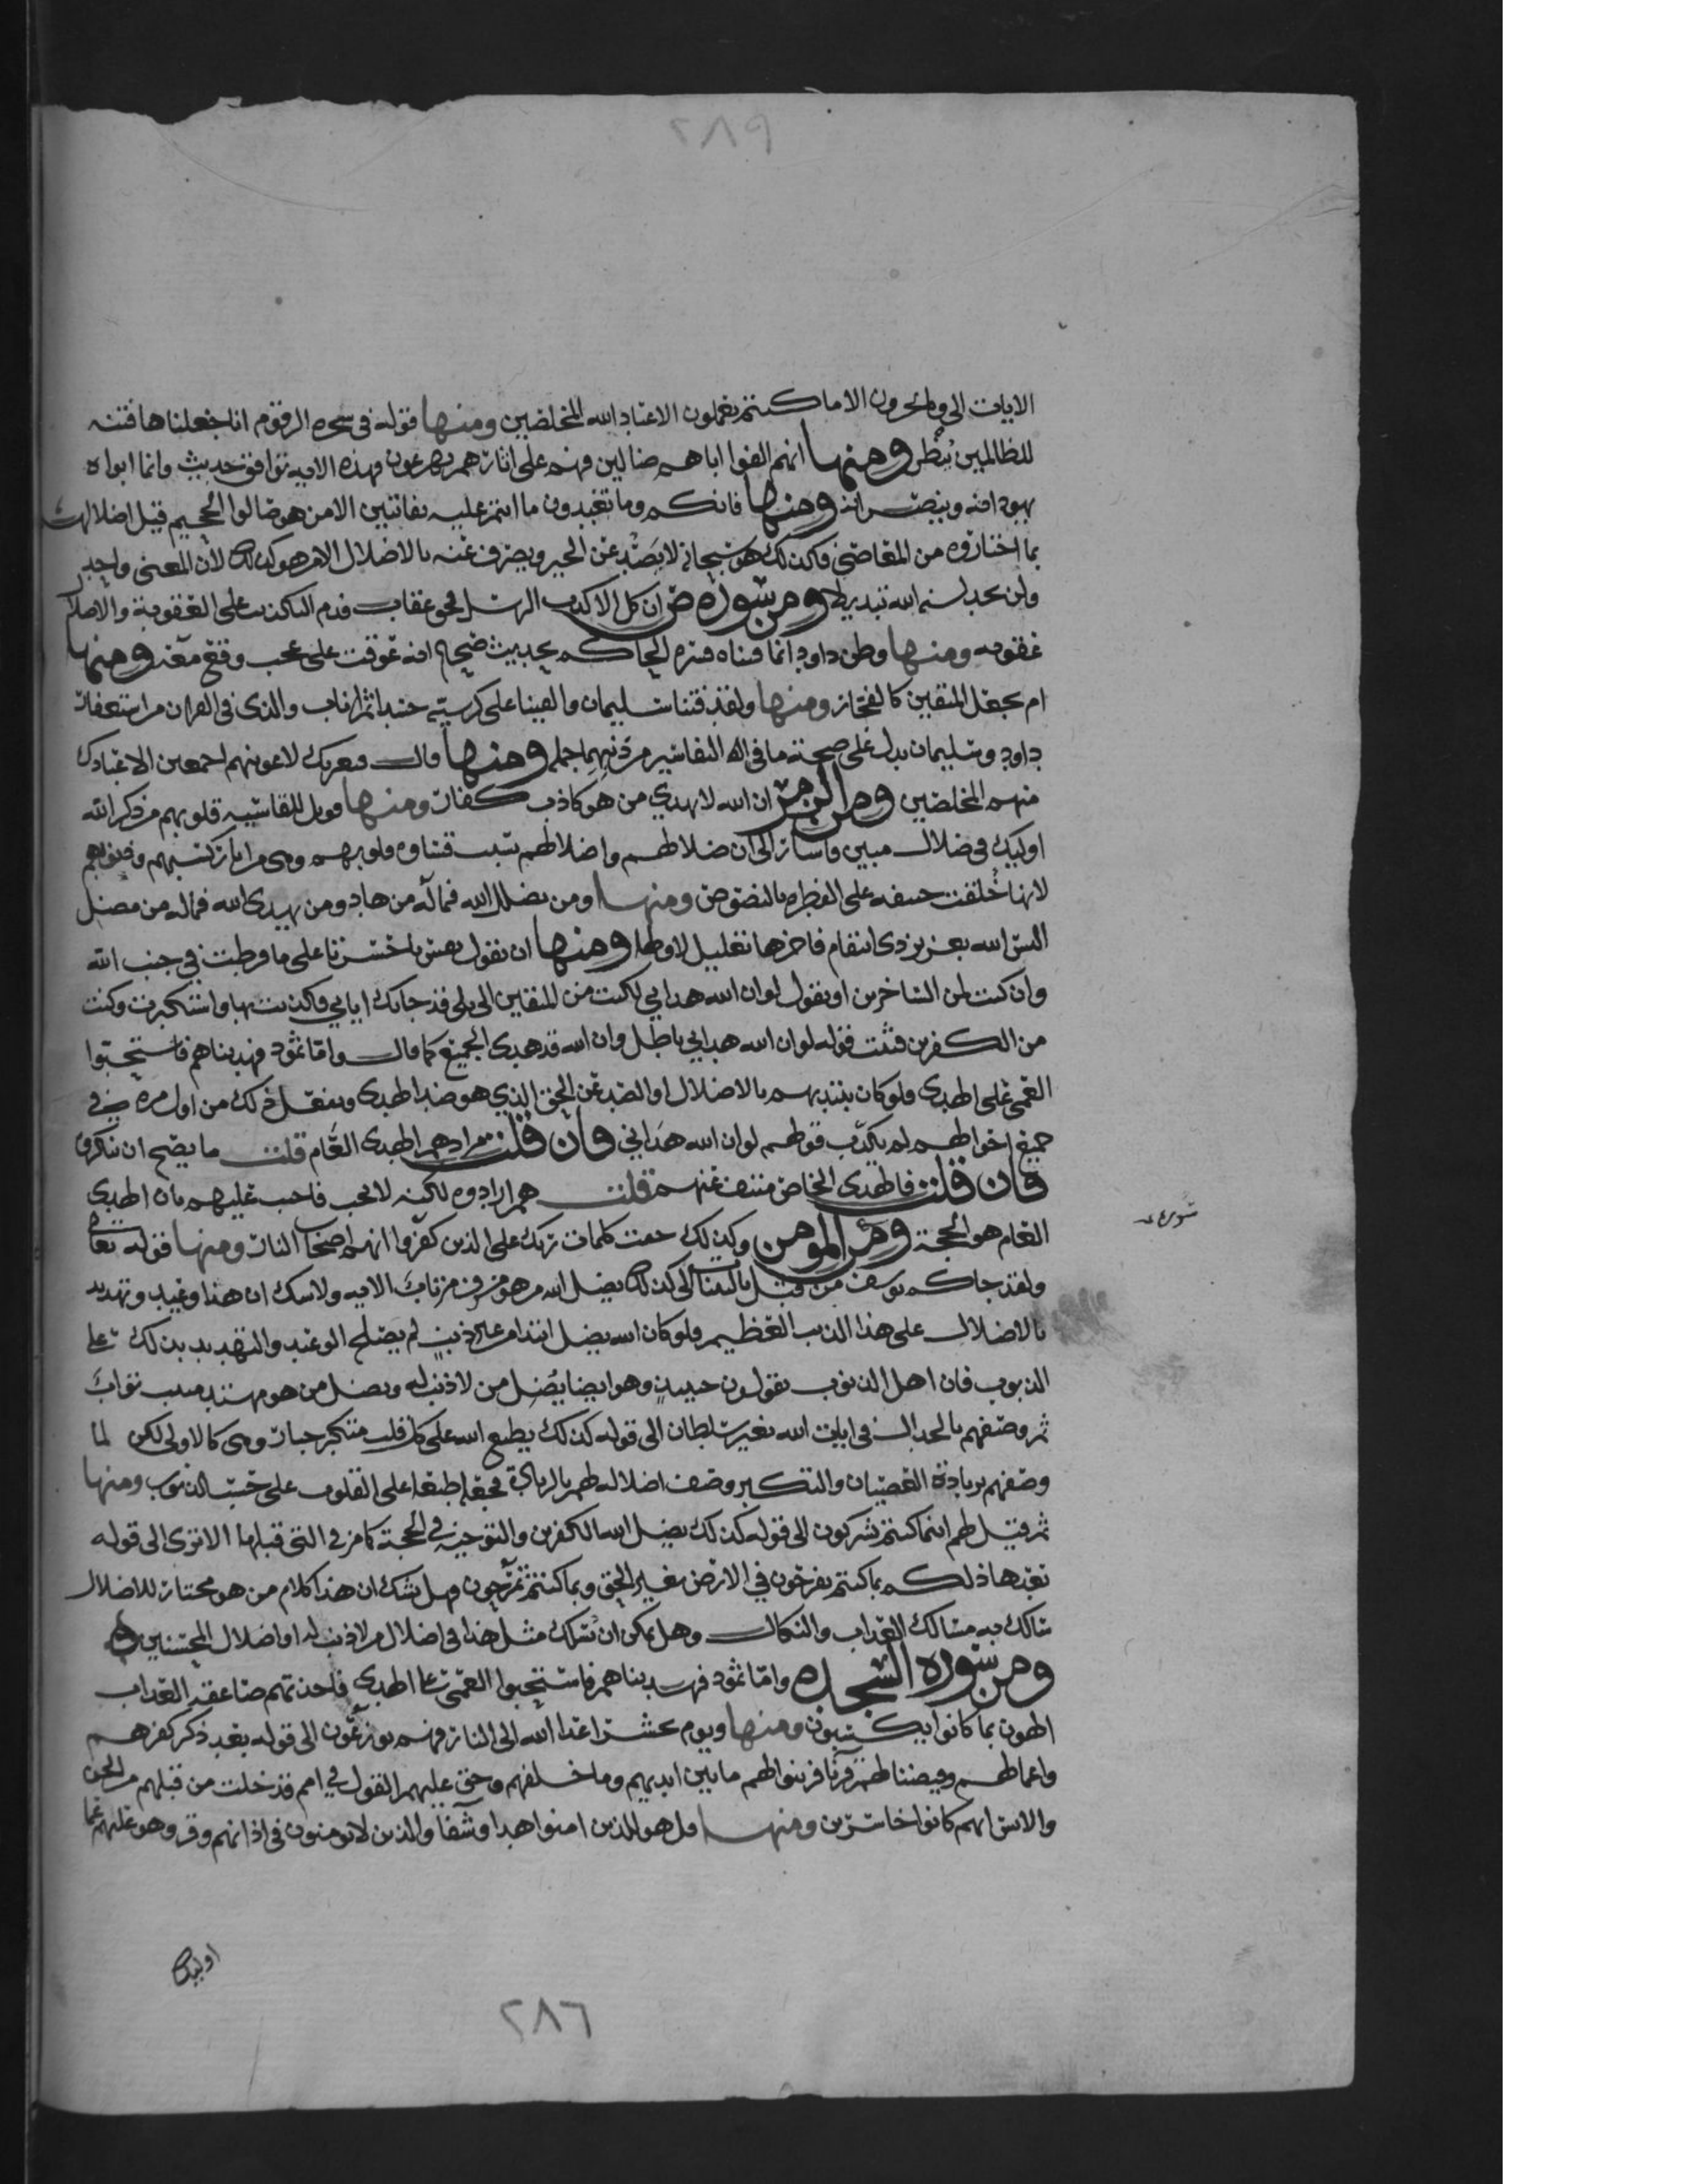 ٢٨٩
الايات الى وما تجزون الا ما كنتم تعملون الا عباد الله المخلصين ومنها قوله فى شجره الزقوم انا جعلناها فتنه
للظالمين ومنها انهم الفوا اباهم ضالين فهم على اثارهم يهرعون وهذه الايه توافق حديث وانما ابواه
يهودانه وينصرانه ومنها فانكم وما تعبدون ما انتم عليه بفاتنين الا من هو صالوا الجحيم قبل اضلالهم
بما اختاروه من المعاصى وكذلك هو سبحانه لا يصد عن الخير ويصرف عنه بالاضلال الا من هو كذلك لان المعنى واحد
ولن تجد لسنه الله تبديلا ومن سورة ص ان كل الا كذب الرسل فحق عقاب قدم التكذيب على العقوبة والاضلال
عقوبه ومنها وظن داود انما فتناه فسره الحاكم بحديث صحيح انه عوقب على عجب وقع منه ومنها
ام نجعل المتقين كالفجار ومنها ولقد فتنا سليمان والقينا على كرسيه جسدا ثم اناب والذى فى القران من استغفار
داود وسليمان يدل على صحة ما فى التفاسير من ذنبهما جمله ومنها قال فبعزتك لاغوينهم اجمعين الا عبادك
منهم المخلصين ومن الزمر ان الله لا يهدي من هو كاذب كفار ومنها فويل للقاسيه قلوبهم من ذكر الله
اوليك فى ضلال مبين واشار الى ان ضلالهم واضلالهم بسبب قساوه قلوبهم وهى من اثار كسبهم وذنوبهم
لانها خلقت حنيفه على الفطره بالنصوص ومنها ومن يضلل الله فما له من هاد ومن يهدى الله فما له من مضل
اليس الله بعزيز ذى انتقام فاخرها تعليل لاولها ومنها ان تقول نفس يا حسرتا على ما فرطت في جنب الله
وان كنت لمن الساخرين او تقول لو ان الله هداني لكنت من المتقين الى بلى قد جاتك اياتي فكذبت بها واستكبرت وكنت
من الكفرين فثبت قوله لو ان الله هداني باطل وان الله قد هدى الجميع كما قال واما ثمود فهديناهم فاستحبوا
العمى على الهدى ولو كان يبتديهم بالاضلال او الصد عن الحق الذي هو ضد الهدى ويفعل ذلك من اول مره في
جميع احوالهم لم يكذب قولهم لو ان الله هداني فان قلت مرادهم الهدى العام قلت ما يصح ان ننكره
فان قلت فالهدى الخاص منتف عنهم قلت هم ارادوه لكنه لا يجب فاحب عليهم بان الهدى
العام هو الحجة ومن المومن وكذلك حقت كلمات ربك على الذين كفروا انهم اصحاب النار ومنها قوله تعالى
ولقد جاكم يوسف من قبل بالبينات الى كذلك يضل الله من هو مسرف مرتاب الايه ولا شك ان هذا وعيد وتهديد
بالاضلال على هذا الذنب العظيم ولو كان الله يضل ابتدا من غير ذنب لم يصلح الوعيد والتهديد بذلك على
الذنوب فان اهل الذنوب يقولون حينيذ وهو ايضا يضل من لا ذنب له ويضل من هو مهتد منيب تواب
ثم وصفهم بالجدال فى ايات الله بغير سلطان الى قوله كذلك يطبع الله على كل قلب متكبر جبار وهى كالاولى لكن لما
وصفهم بزيادة العصيان والتكبر وصف اضلاله لهم بالزيادة فجعله طبعا على القلوب على حسب الذنوب ومنها
ثم قيل لهم اينما كنتم تشركون الى قوله كذلك يضل الله الكفرين والتوجيه في الحجة كما مر في التى قبلها الا ترى الى قوله
بعدها ذلكم بما كنتم تفرحون في الارض بغير الحق وبما كنتم تمرحون وهل يشك ان هذا كلام من هو مختار للاضلال
سالك به مسالك العذاب والنكال وهل يمكن ان يترك مثل هذا فى اضلال من لا ذنب له او اضلال المحسنين
ومن سورة السجده واما ثمود فهديناهم فاستحبوا العمى على الهدى فاخذتهم صاعقه العذاب
الهون بما كانوا يكسبون ومنها ويوم يحشر اعدا الله الى النار فهم يوزعون الى قوله بعد ذكر كفرهم
واعمالهم وقيضنا لهم قرنا فزينوا لهم ما بين ايديهم وما خلفهم وحق عليهم القول في امم قد خلت من قبلهم من الجن
والانس انهم كانوا خاسرين ومنها قل هو للذين امنوا هدا وشفا والذين لا يومنون فى اذانهم وقر وهو عليهم عما
اوليك
٢٨٦